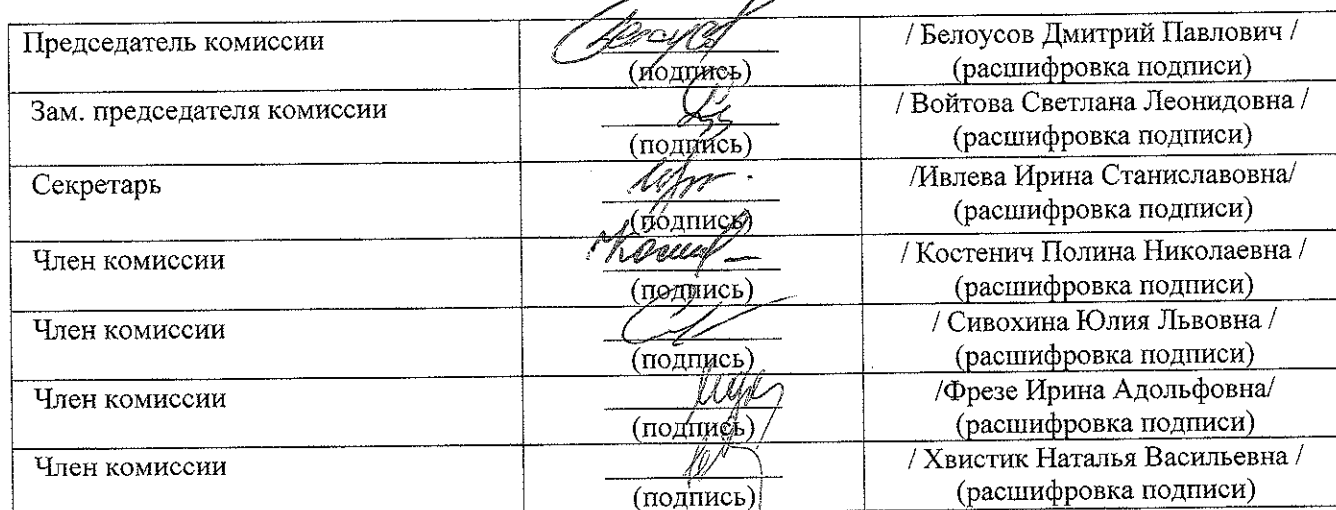 Председатель комиссии
(подпись)
/ Белоусов Дмитрий Павлович /
(расшифровка подписи)
Зам. председателя комиссии
(подпись)
/ Войтова Светлана Леонидовна /
(расшифровка подписи)
Секретарь
(подпись)
/Ивлева Ирина Станиславовна/
(расшифровка подписи)
Член комиссии
(подпись)
/ Костенич Полина Николаевна /
(расшифровка подписи)
Член комиссии
(подпись)
/ Сивохина Юлия Львовна /
(расшифровка подписи)
Член комиссии
(подпись)
/Фрезе Ирина Адольфовна/
(расшифровка подписи)
Член комиссии
(подпись)
/ Хвистик Наталья Васильевна /
(расшифровка подписи)